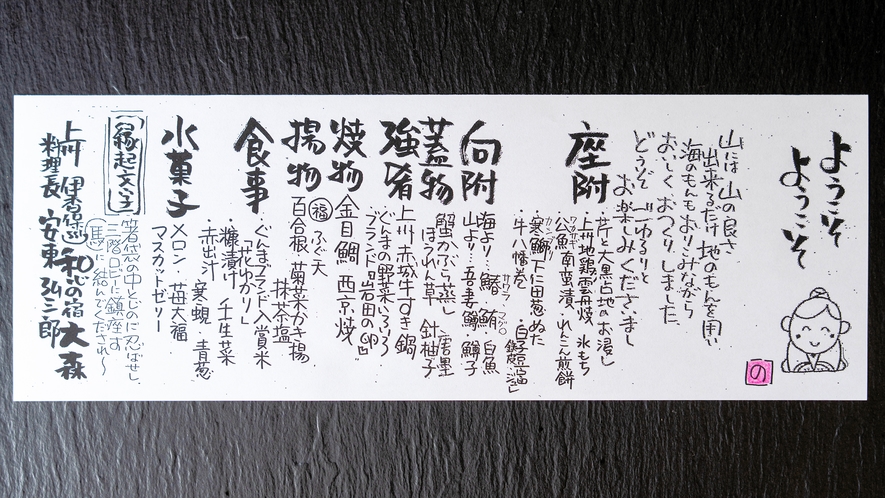 ようこそ
ようこそ
の
山には 山の良さ
出来るだけ 地のもんを用い
海のもんもおりこみながら
おいしく おつくりしました
どうぞ ごゆるりと
お楽しみくださいまし
座附
・芹と大黒占地のお浸し
・上州地鶏雲丹焼 氷もち
・公魚南蛮漬 れんこん煎餅
・寒鰤下仁田葱ぬた
・牛八幡巻
向附
海より… 鰆 鮪 白魚
サワラ マグロ
山より… 吾妻鱒・鱒子
蓋物
蟹かぶら蒸し 唐墨
ほうれん草 針柚子
強肴
上州赤城牛すき鍋
ぐんまの野菜いろいろ
ブランド卵 岩田の卵
焼物
金目鯛 西京焼
揚物
福 ふく天
百合根・菊菜かき揚
抹茶塩
食事
ぐんまブランド入賞米
「花ゆかり」
・糠漬け 壬生菜
・赤出汁 寒蜆 青葱
水菓子
メロン・苺大福
マスカットゼリー
縁起文字
箸袋の中とじのに忍ばせし
二階ロビーに鎮座す
馬に結んでくだされ〜
上州 伊香保温泉 和心の宿 大森
料理長 安東弘三郎